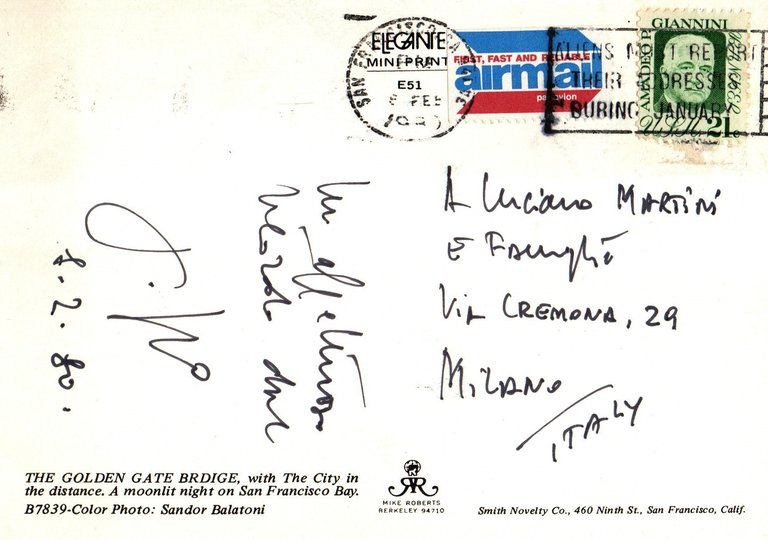 ELEGANTE
MINI PRINT
E51
SAN FRANCISCO, CA
FEB
FIRST, FAST AND RELIABLE
airmail
par avion
ALIENS MUST REPORT
THEIR ADDRESSES
DURING JANUARY
AMADEO P. GIANNINI
USA 21c
A Luciano MARTINI
E Famiglia
VIA CREMONA, 29
MILANO
ITALY
Un affettuoso
ricordo dal
8.2.80.
THE GOLDEN GATE BRDIGE, with The City in
the distance. A moonlit night on San Francisco Bay.
B7839-Color Photo: Sandor Balatoni
MIKE ROBERTS
BERKELEY 94710
Smith Novelty Co., 460 Ninth St., San Francisco, Calif.